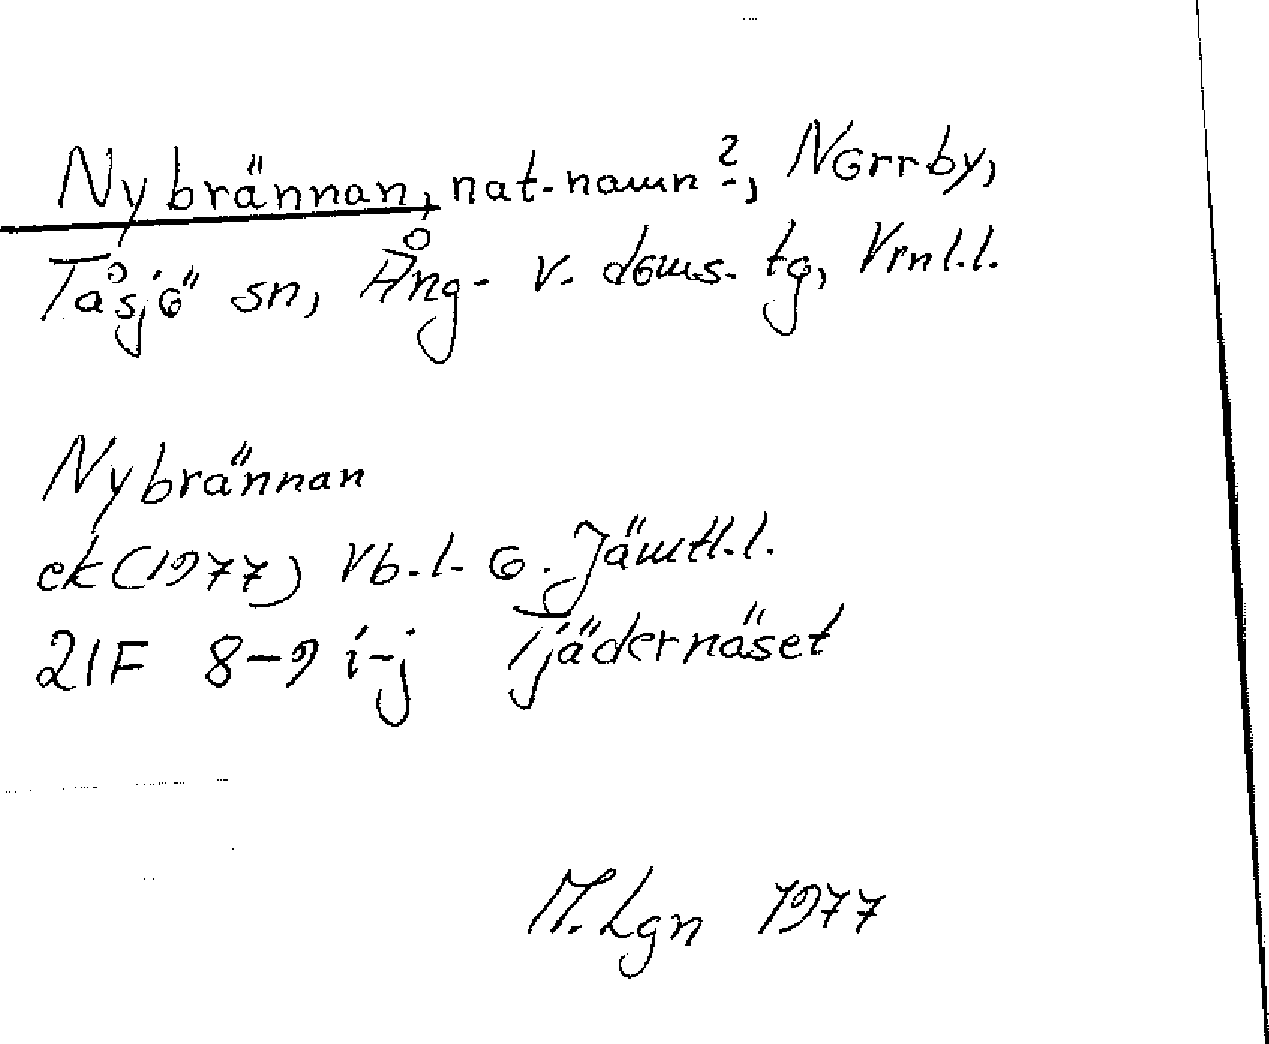 Nybrännan, nat-namn?, Norrby,
Tåsjö sn, Ång- v. doms- tg, Vrnl.l.
Nybrännan
ek (1977) Vb.l. o. Jämtl.l.
21F 8-9 i-j Tjädernäset
M. Lgn 1977